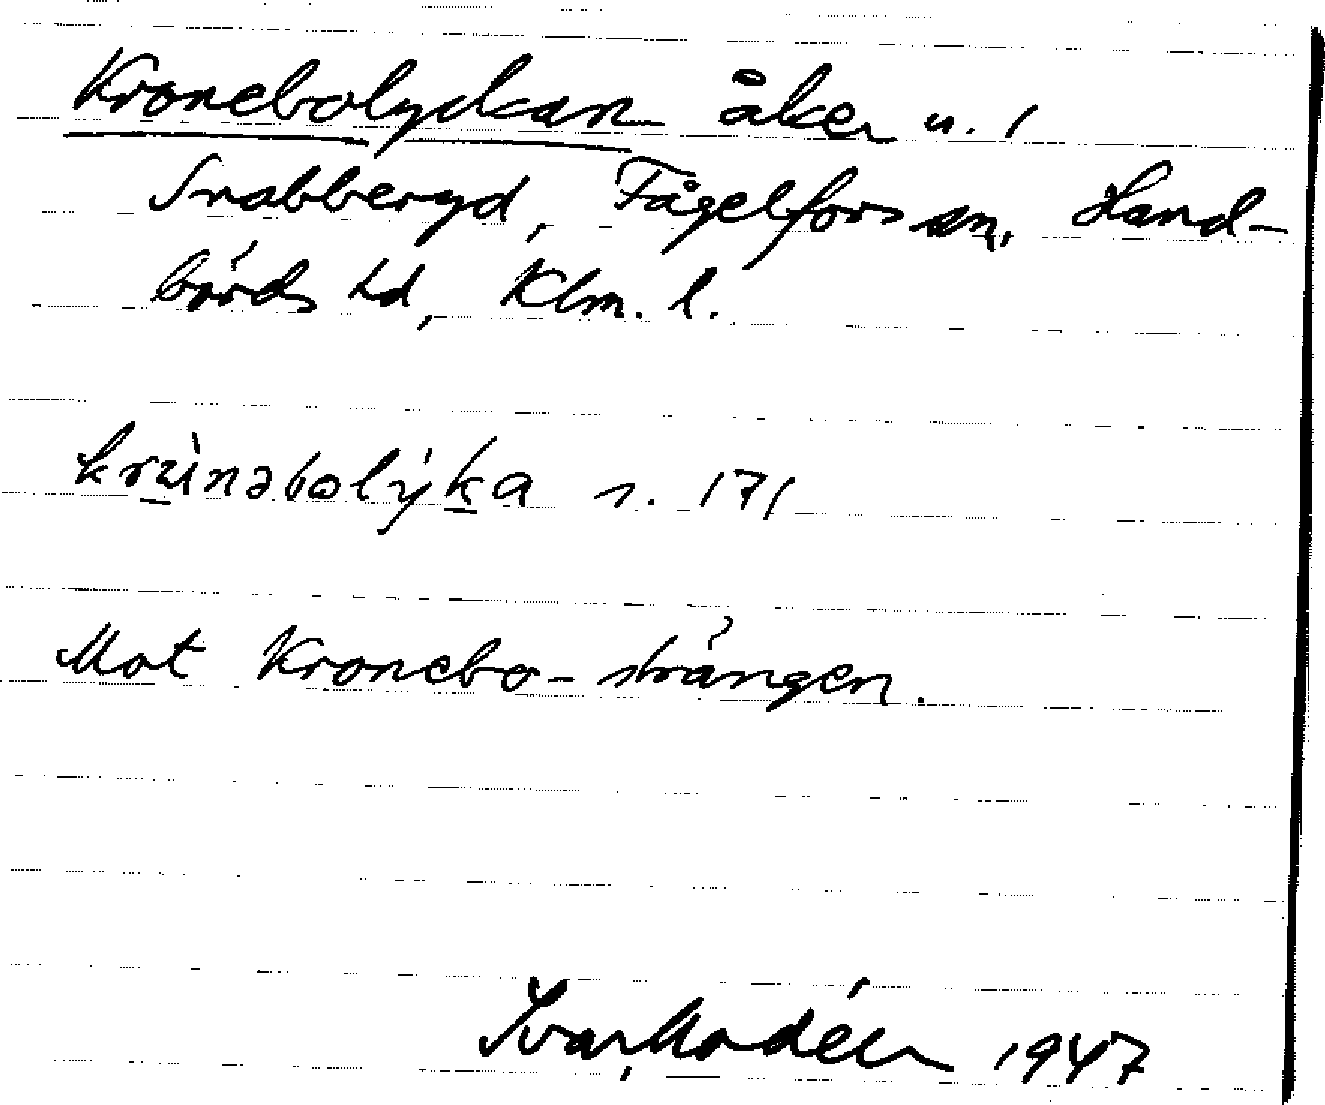 Kronebolyckan åker u. 1
Snabberyd, Fågelfors sn, Hand-
börds hd, Klm. l.
krúnəbolýka s. 171
Mot Kronebo-strängen.
Ivar Modéer 1947